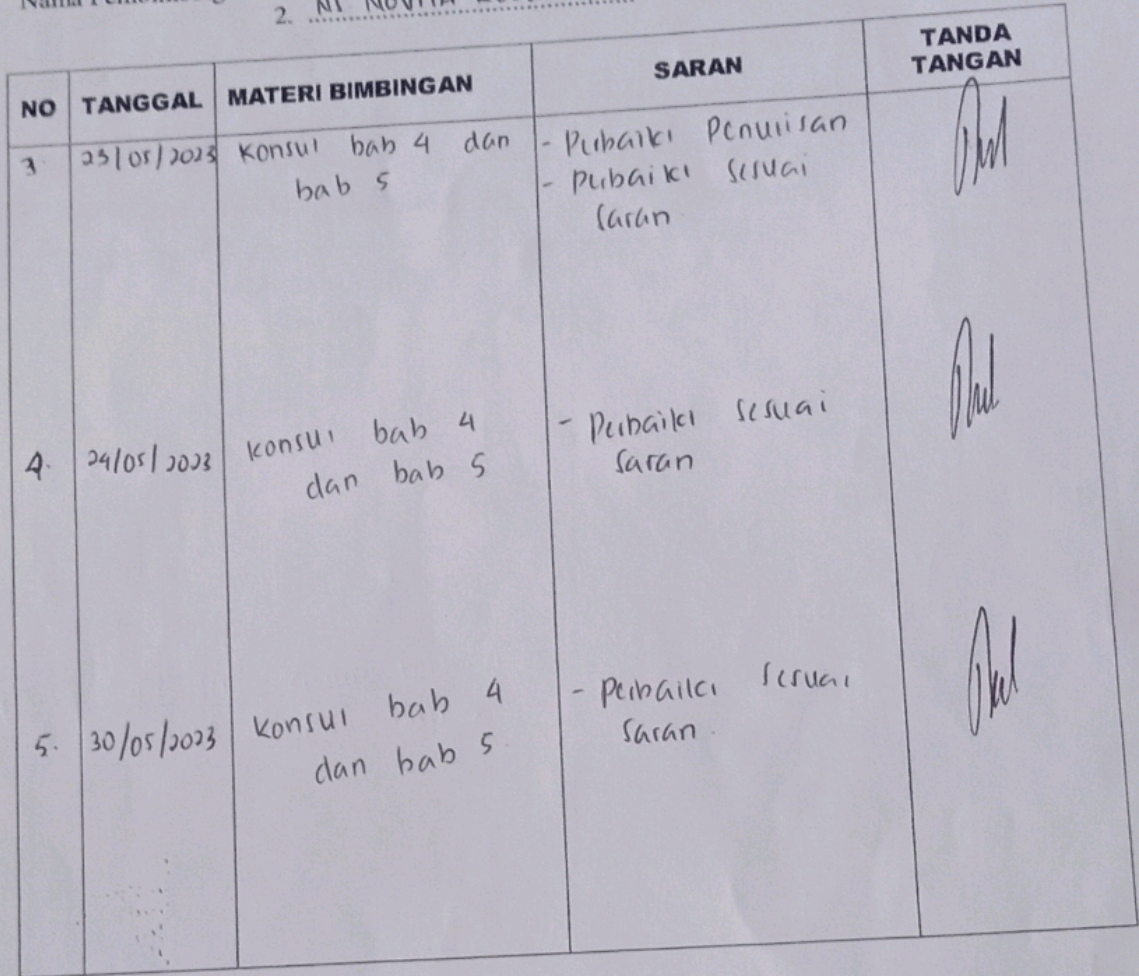 2. NI NOVITA
NO TANGGAL MATERI BIMBINGAN SARAN TANDA TANGAN
3. 23/05/2023 Konsul bab 4 dan bab 5
- Perbaiki Penulisan
- Perbaiki sesuai
saran
4. 24/05/2023 Konsul bab 4
dan bab 5
- Perbaiki sesuai
saran
5. 30/05/2023 Konsul bab 4
dan bab 5.
- Perbaiki sesuai
saran.